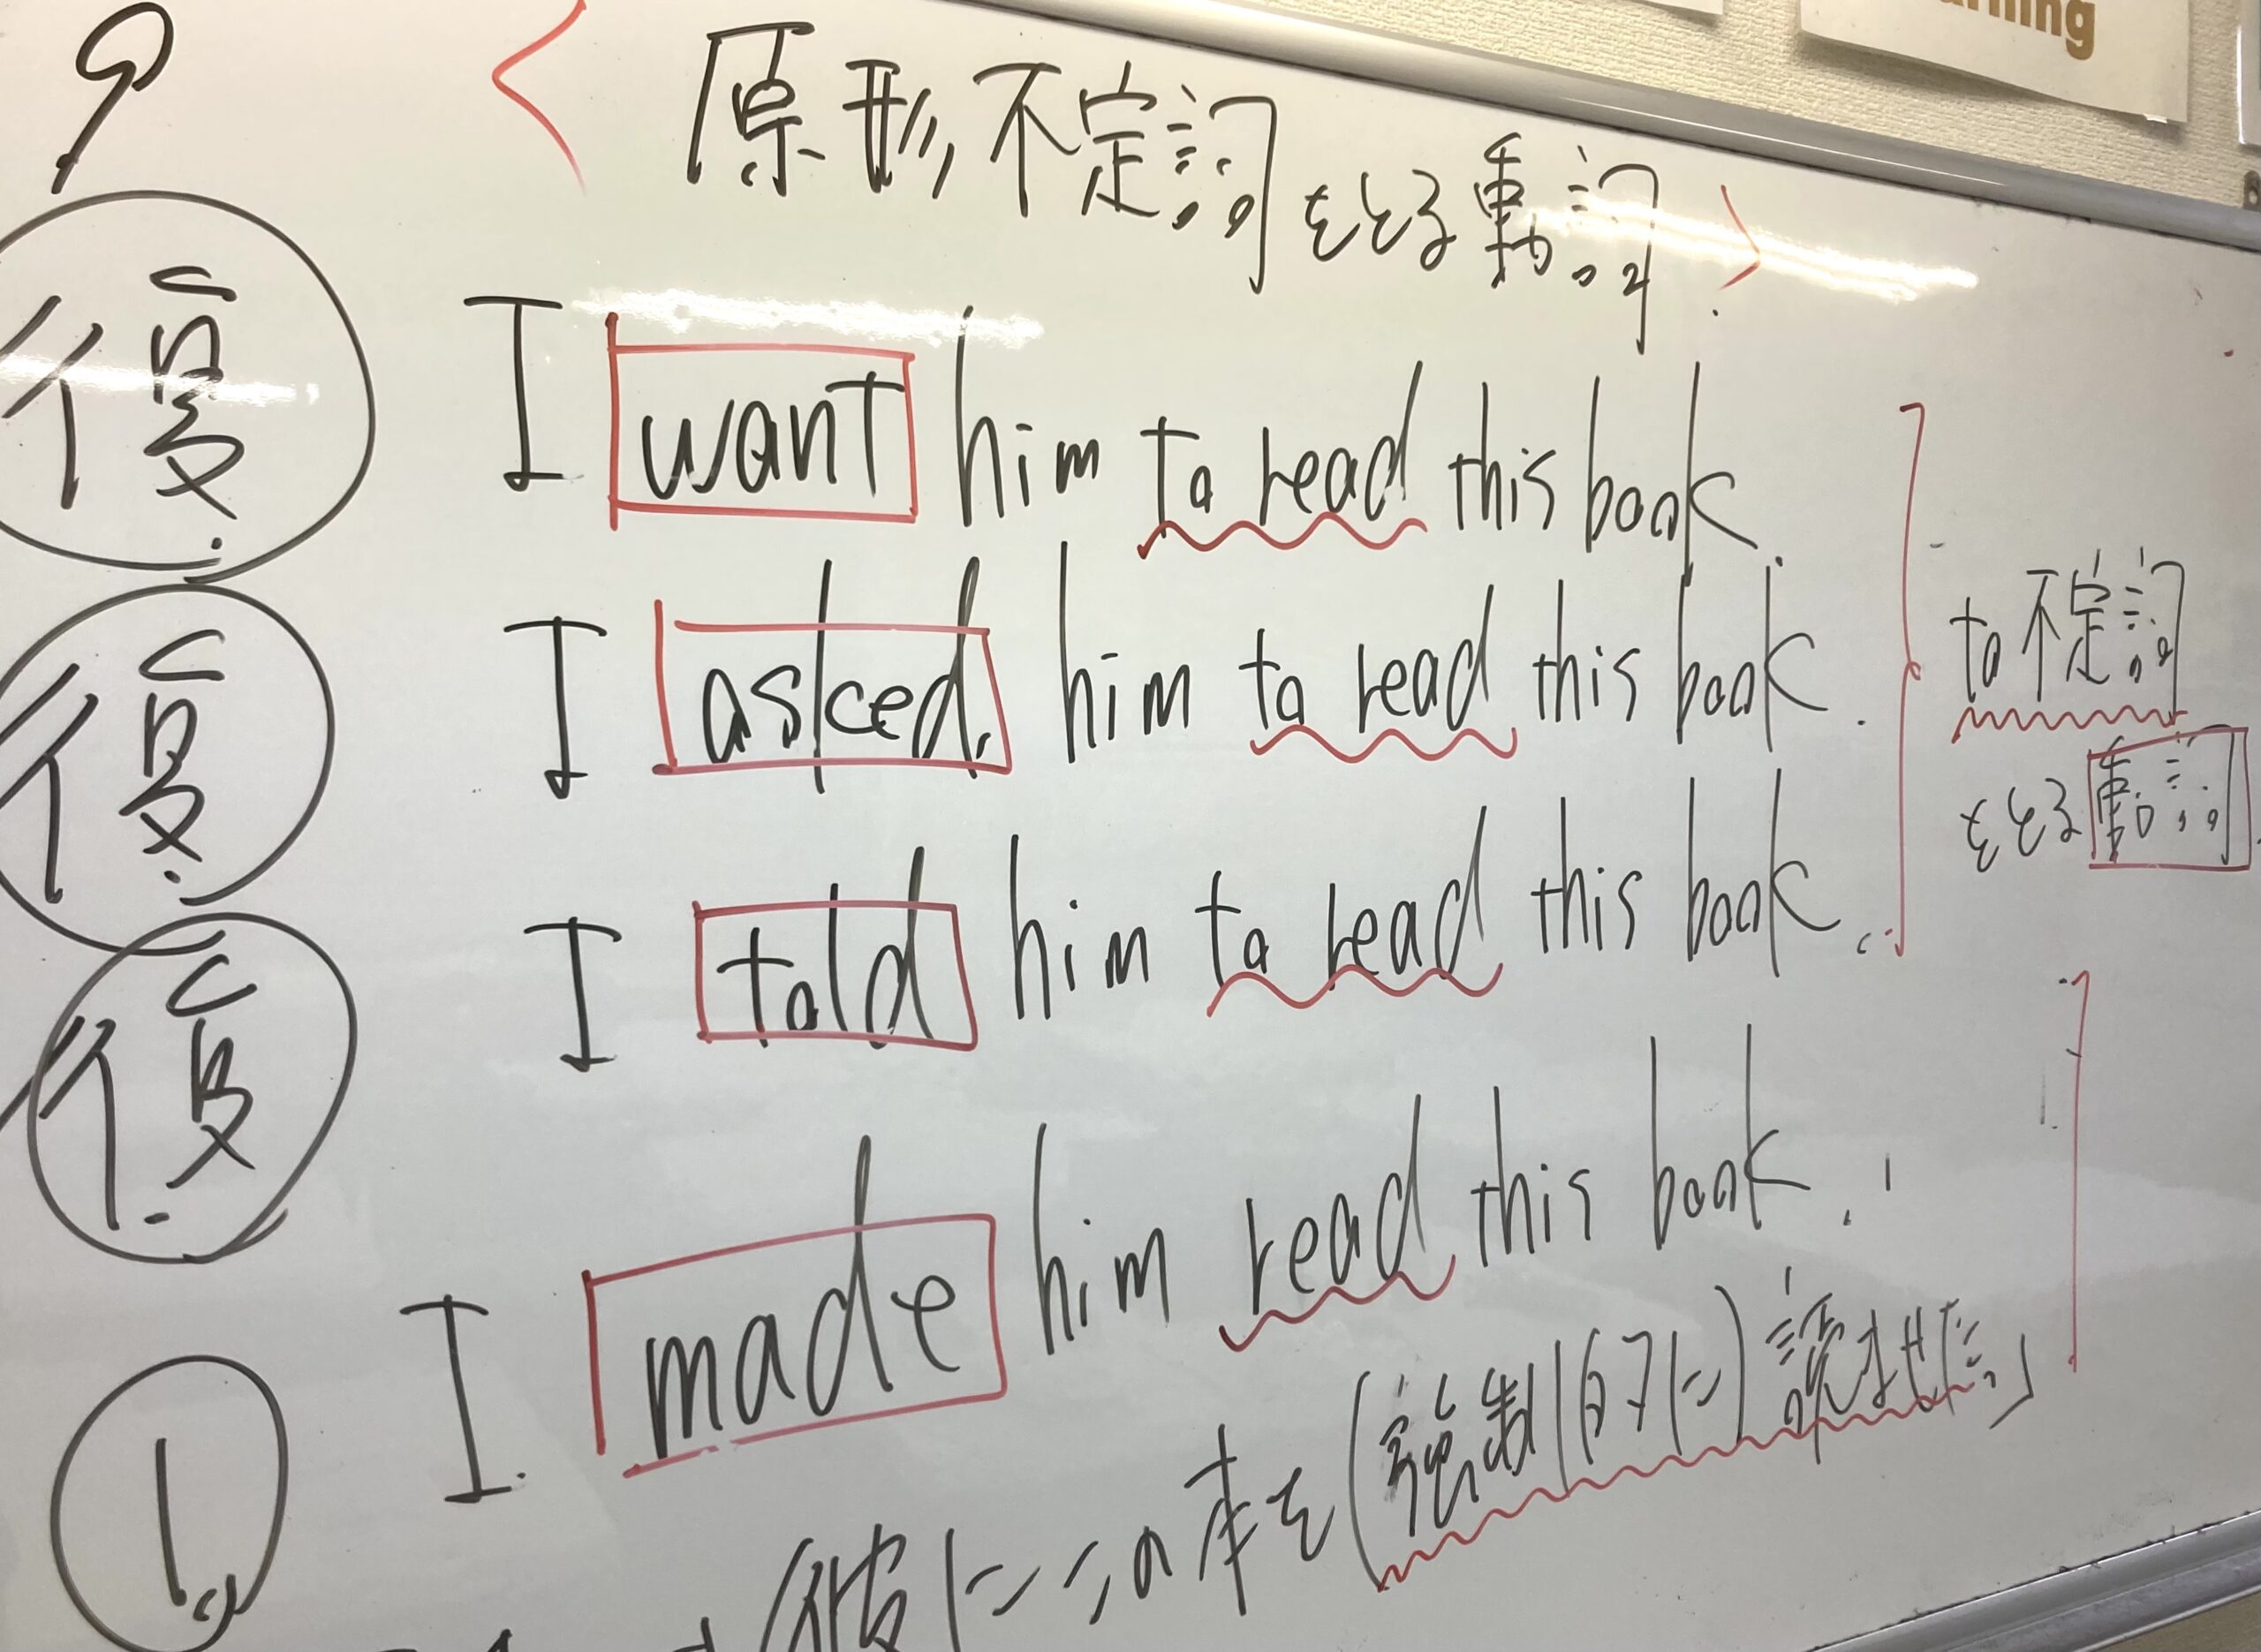 9 < 原形不定詞をとる動詞. >
復. I want him to read this book.
復. I asked him to read this book.
復. I told him to read this book.
to不定詞
をとる動詞.
1. I made him read this book.
彼にこの本を(強制的に)読ませた」